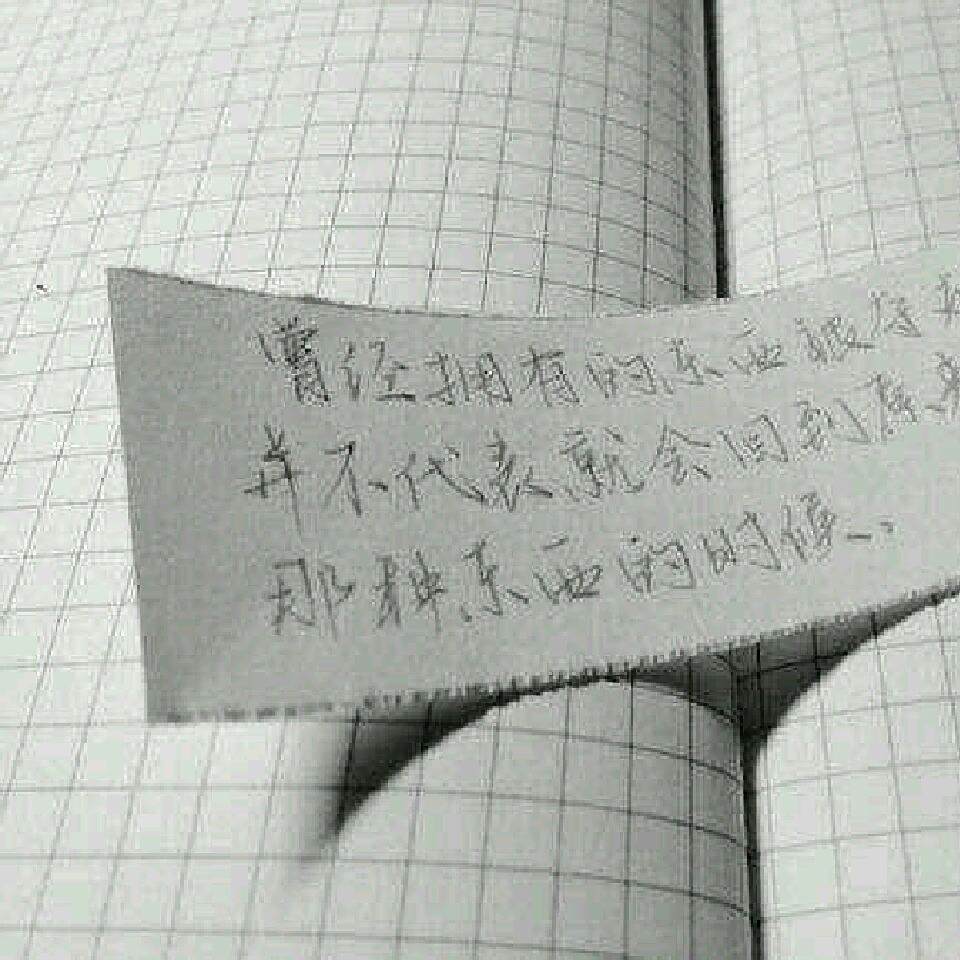 曾经拥有的东西被夺
并不代表就会回到原来
那种东西的时候..